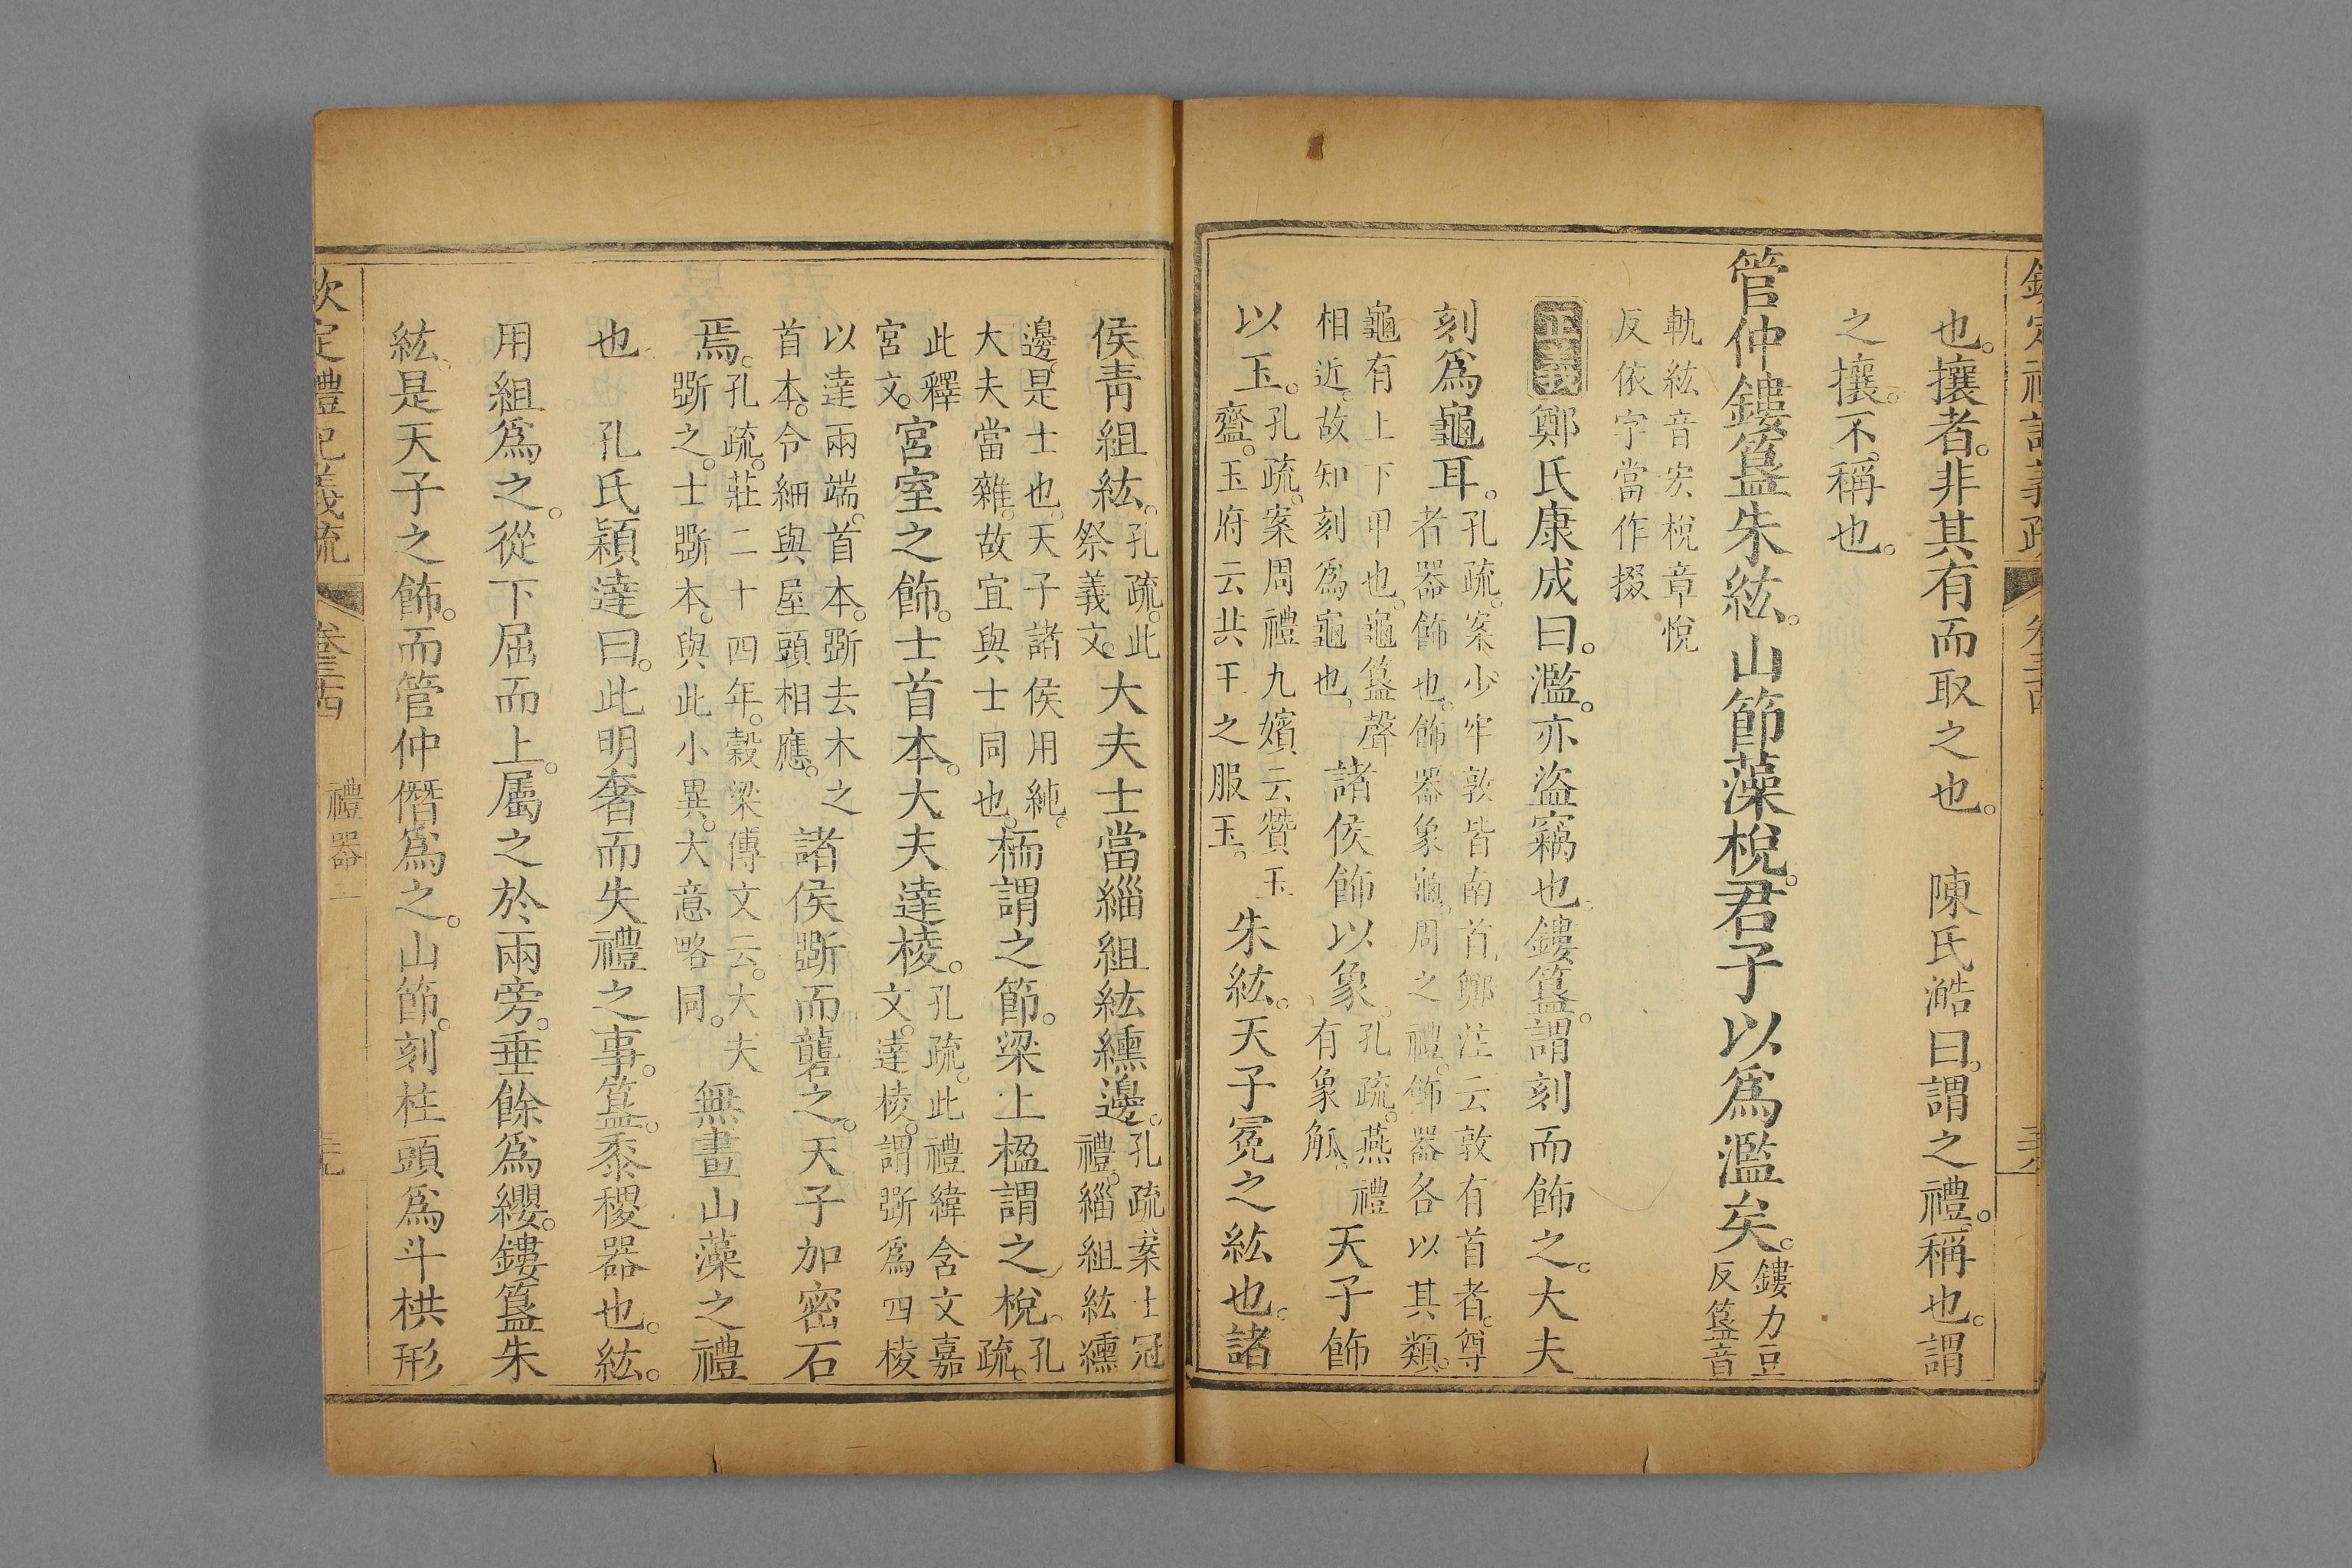 也。攘者。非其有而取之也。 陳氏澔曰。謂之禮。稱也。謂
之攘。不稱也。
管仲鏤簋朱紘。山節藻梲。君子以爲濫矣。鏤力豆
反簋音
軌紘音宏梲章悅
反依字當作掇
正義 鄭氏康成曰。濫。亦盜竊也。鏤簋。謂刻而飾之。大夫
刻爲龜耳。孔疏。案少牢敦皆南首。鄭注云敦有首者。尊
者器飾也。飾器象龜。周之禮。飾器各以其類。
龜有上下甲也。龜簋聲
相近。故知刻爲龜也。諸侯飾以象。孔疏。燕禮
有象觚。天子飾
以玉。孔疏。案周禮九嬪云贊玉
齍。玉府云共王之服玉。朱紘。天子冕之紘也。諸
侯青組紘。孔疏。此
祭義文。大夫士當緇組紘纁邊。孔疏案士冠
禮。緇組紘纁
邊。是士也。天子諸侯用純。
大夫當雜。故宜與士同也。栭謂之節。梁上楹謂之梲。孔
疏。
此釋
宮文。宮室之飾。士首本。大夫達棱。孔疏。此禮緯含文嘉
文。達棱。謂斲爲四棱
以達兩端。首本。斲去木之
首本。令細與屋頭相應。諸侯斲而礱之。天子加密石
焉。孔疏。莊二十四年。穀梁傳文云。大夫
斲之。士斲本。與此小異。大意略同。無畫山藻之禮
也。 孔氏穎達曰。此明奢而失禮之事。簋。黍稷器也。紘。
用組爲之。從下屈而上。屬之於兩旁。垂餘爲纓。鏤簋朱
紘。是天子之飾。而管仲僭爲之。山節。刻柱頭爲斗栱形
欽定禮記義疏 卷三十四 禮器二